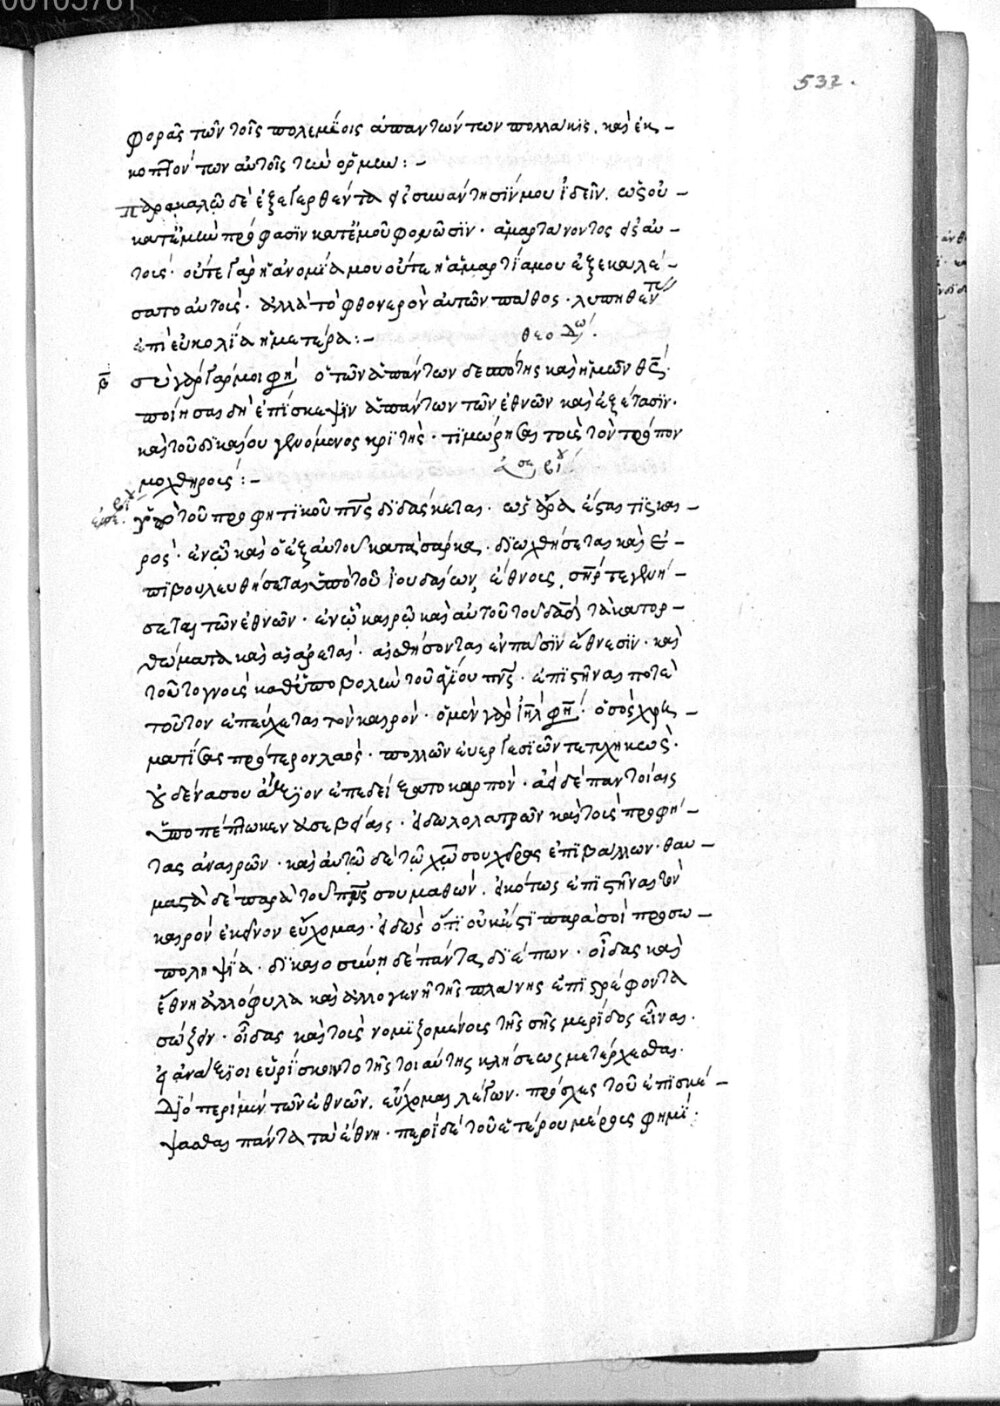 00103781
532.
φορᾶς τῶν τοῖς πολεμίοις ἀπαντώντων πολλάκις. καὶ ἐκ-
κοπτόντων αὐτοῖς τὴν ὁρμήν:-
παρακαλῶ δὲ ἐξεγερθέντα εἰς συνάντησίν μου ἰδεῖν. ὡς οὐ-
κατ' ἐμὴν πρόφασιν κατ' ἐμοῦ φονῶσιν. ἁμαρτάνοντος εἰς αὐ-
τούς. οὔτε γὰρ ἡ ἀνομία μου οὔτε ἡ ἁμαρτία μου ἐξεκαλέ-
σατο αὐτούς. ἀλλὰ τὸ φθονερὸν αὐτῶν πάθος. λυπηθέντων
ἐπὶ εὐκολίᾳ ἡμετέρᾳ:- θεοδώ
σὺ γάρ μοι φη ὁ τῶν ἁπάντων δεσπότης καὶ ἡμῶν θς.
ποίησας δὴ ἐπίσκεψιν ἁπάντων τῶν ἐθνῶν καὶ ἐξέτασιν.
καὶ τοῦ δικαίου γενόμενος κριτής. τιμώρησαι τοὺς τὸν τρόπον
μοχθηρούς:-
τοῦ προφητικοῦ πνς διδάσκεται. ὡς ἄρα ἔσται τὶς και-
ρός. ἐν ᾧ καὶ ὁ ἐξ αὐτοῦ κατὰ σάρκα. διωχθήσεται καὶ ἐ-
πιβουλευθήσεται ὑπὸ τοῦ ἰουδαίων ἔθνους, σηρ τε γενή-
σεται τῶν ἐθνῶν. ἐν ᾧ καιρῷ καὶ αὐτοῦ τοῦ δαδ τὰ κατορ-
θώματα καὶ αἱ ἀρεταί. ἀσθήσονται ἐν πᾶσιν ἔθνεσιν. καὶ
τοῦτο γνοὺς καθ' ὑποβολὴν τοῦ ἁγίου πνς. ἐπιστῆναι ποτὲ
τοῦτον ἐπεύχεται τὸν καιρόν. ὁ μὲν γὰρ ιηλ φη. ὁ σὸς χρη-
ματίσας πρότερον λαός. πολλῶν εὐεργεσιῶν τετυχηκώς.
οὐδένα σου ἄξιον ἐπεδείξατο καρπόν. ἀεὶ δὲ παντοίαις
ὑποπέπτωκεν ἀσεβείαις. εἰδωλολατρῶν καὶ τοὺς προφή-
τας ἀναιρῶν. καὶ αὐτῷ δὲ τῷ χῷ σου χεῖρας ἐπιβάλλων. θαυ-
μαστὰ δὲ παρὰ τοῦ πνς σου μαθών. εἰκότως ἐπιστῆναι τὸν
καιρὸν ἐκεῖνον εὔχομαι. εἰδὼς ὅτι οὐκ ἔστι παρὰ σοὶ προσω-
ποληψία. δικαιοσύνη δὲ πάντα διέπων. οἶδας καὶ
ἔθνη ἀλλόφυλα καὶ ἀλλογενῆ τῆς πλάνης ἐπιστρέφοντα
σώζειν. οἶδας καὶ τοὺς νομιζομένους τῆς σῆς μερίδος εἶναι.
εἰ ἀνάξιοι εὑρίσκοιντο τῆς τοιαύτης κλήσεως μετέρχεσθαι.
διὸ περὶ μὲν τῶν ἐθνῶν. εὔχομαι λέγων. πρόσχες τοῦ ἐπισκέ-
ψασθαι πάντα τὰ ἔθνη. περὶ δὲ τοῦ ἑτέρου μέρους φημί.